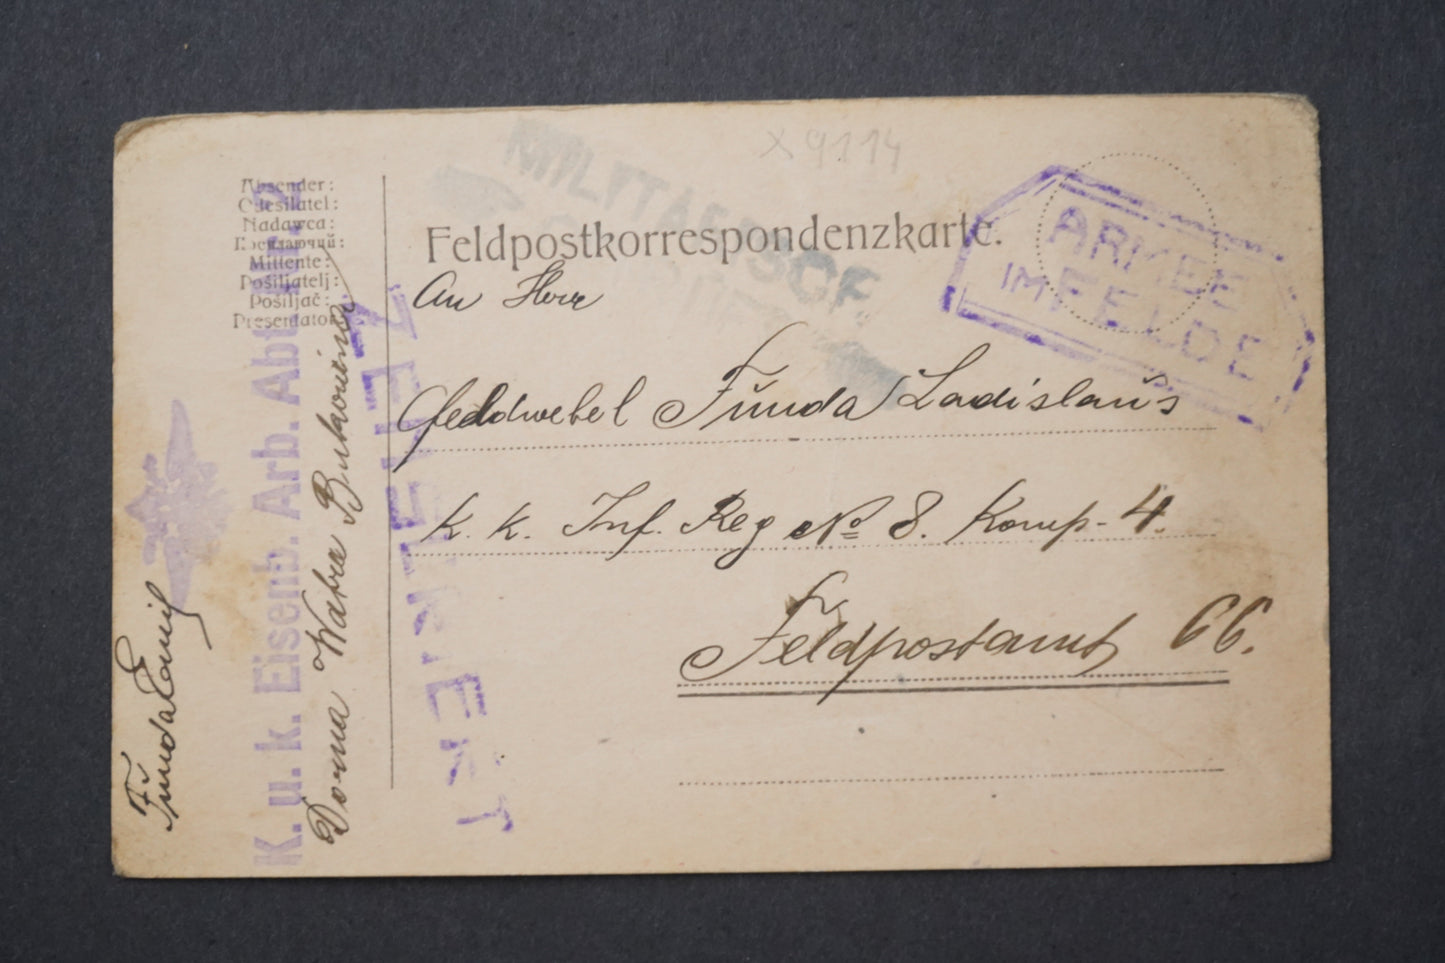 X 9114
Absender:
Odesílatel:
Nadawca:
Посилаючий:
Mittente:
Pošiljatelj:
Pošiljač:
Presentator:
Feldpostkorrespondenzkarte.
ARMEE
IM FELDE
ZENSURIERT
An Herr
Feldwebel Funda Ladislaus
K. K. Inf. Reg № 8. Komp- 4.
Feldpostamt 66.
K. u. k. Eisenb. Arb. Abt.
Dorna Watra Bukovina
Funda Emil